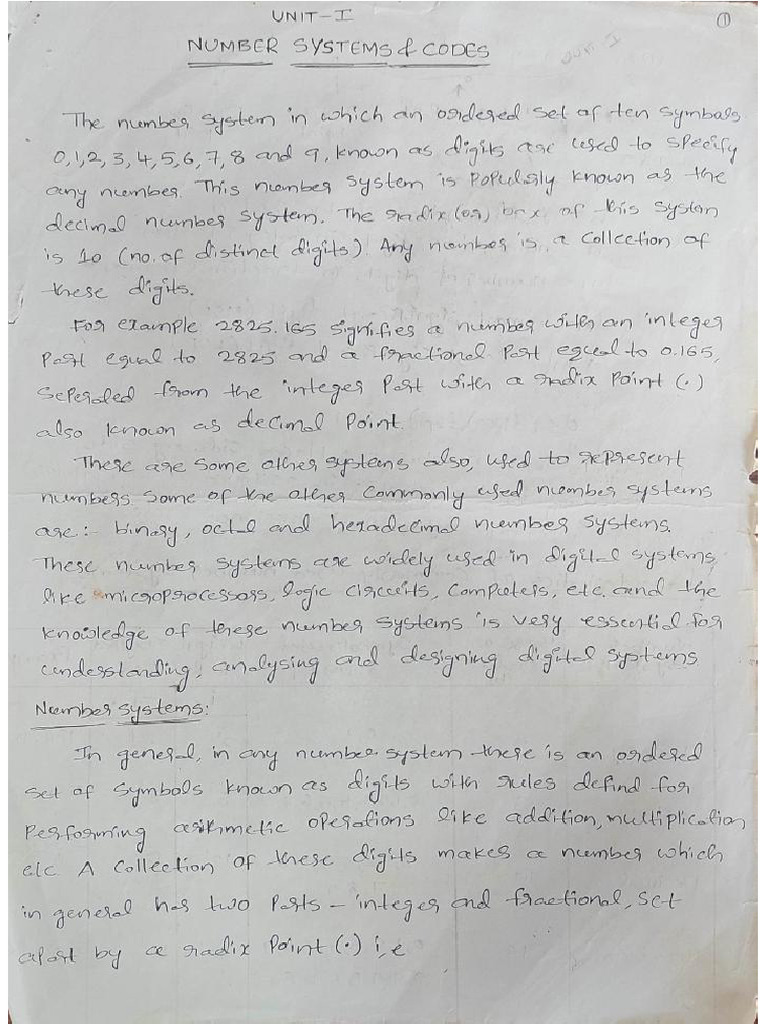 UNIT-I
1
NUMBER SYSTEMS & CODES
The number system in which an ordered set of ten symbols
0,1,2, 3, 4, 5, 6, 7, 8 and 9, known as digits are used to specify
any number. This number system is popularly known as the
decimal number system. The radix (or) base of this system
is 10 (no. of distinct digits). Any number is a collection of
these digits.
For example 2825.165 signifies a number with an integer
part equal to 2825 and a fractional part equal to 0.165,
seperated from the integer part with a radix point (.)
also known as decimal point.
There are some other systems also, used to represent
numbers. Some of the other commonly used number systems
are:- binary, octal and hexadecimal number systems.
These number systems are widely used in digital systems
like microprocessors, logic circuits, computers, etc. and the
knowledge of these number systems is very essential for
understanding, analysing and designing digital systems
Number systems:
In general, in any number system there is an ordered
set of symbols known as digits with rules defind for
performing arithmetic operations like addition, multiplication
etc. A collection of these digits makes a number which
in general has two parts - integer and fractional, set
apart by a radix point (.) i,e